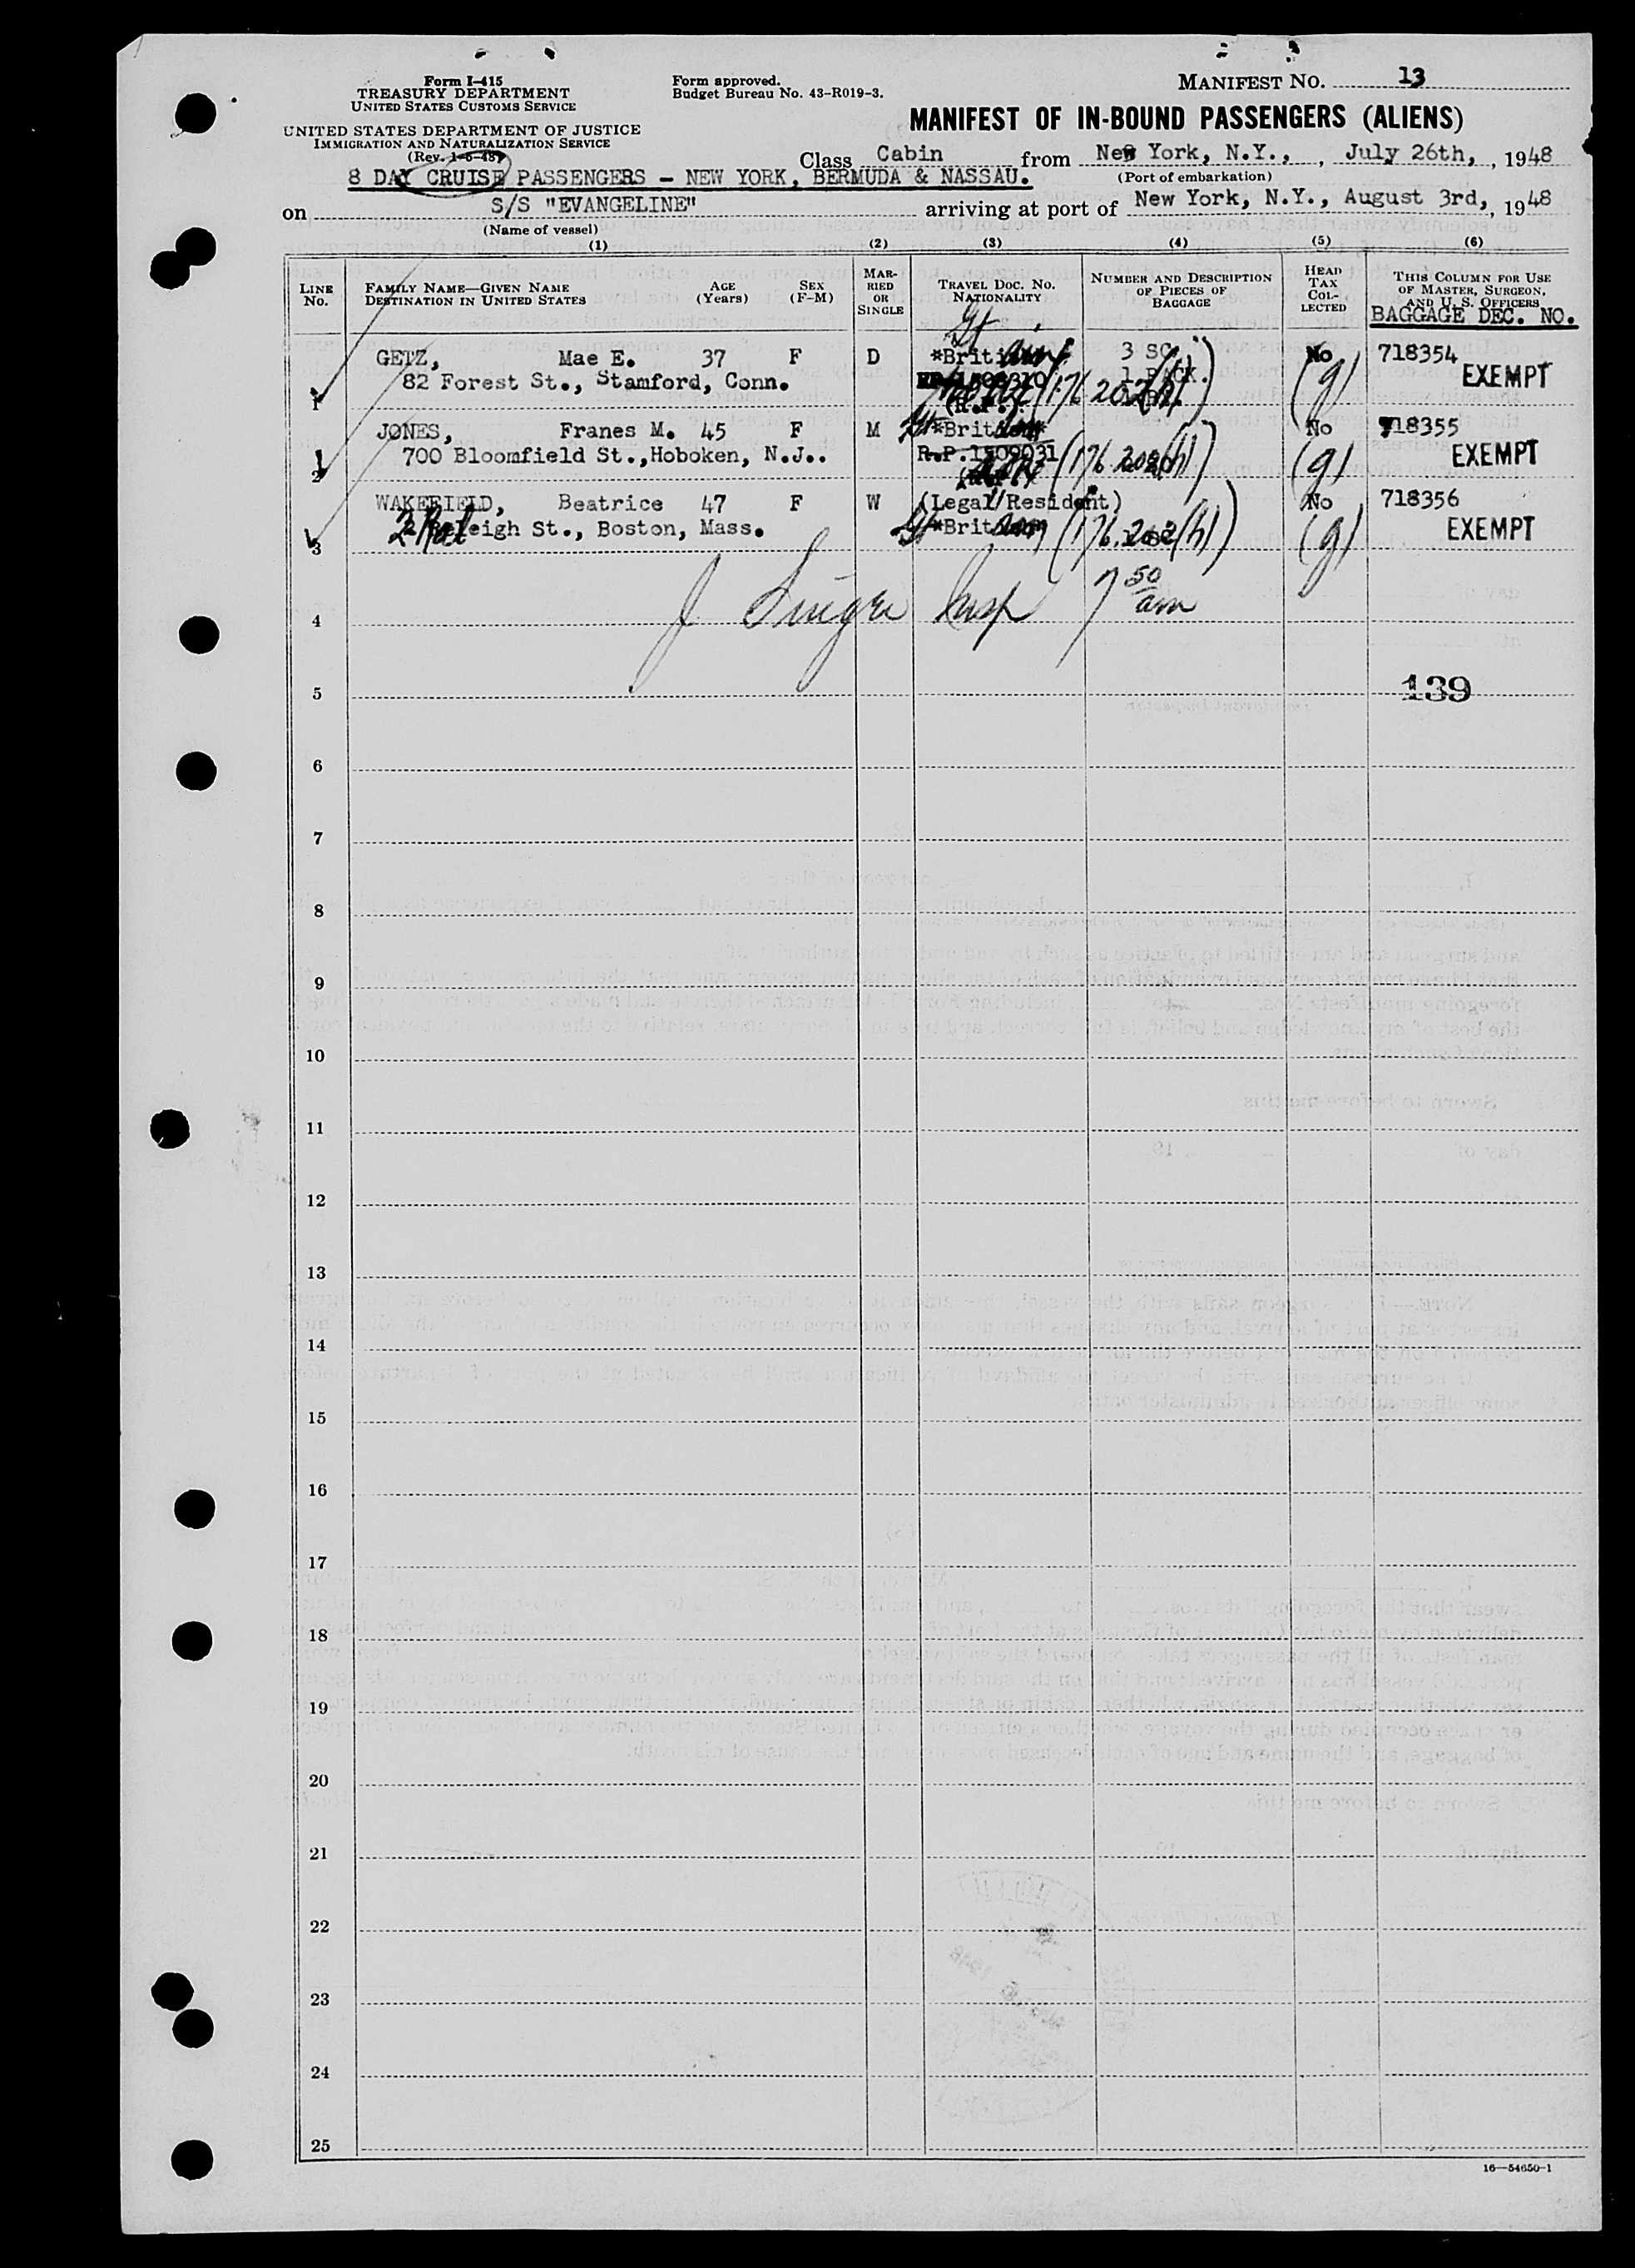 Form I-415
TREASURY DEPARTMENT
UNITED STATES CUSTOMS SERVICE
UNITED STATES DEPARTMENT OF JUSTICE
IMMIGRATION AND NATURALIZATION SERVICE
(Rev. 1-6-48)
Form approved.
Budget Bureau No. 43-R019-3.
MANIFEST NO. 13
MANIFEST OF IN-BOUND PASSENGERS (ALIENS)
Class Cabin from New York, N.Y., , July 26th, , 1948
(Port of embarkation)
8 DAY CRUISE PASSENGERS - NEW YORK, BERMUDA & NASSAU.
on S/S "EVANGELINE" arriving at port of New York, N.Y., August 3rd, , 1948
(Name of vessel)
(1) (2) (3) (4) (5) (6)
LINE No.
FAMILY NAME—GIVEN NAME AGE (Years) SEX (F-M)
DESTINATION IN UNITED STATES
MARRIED OR SINGLE
TRAVEL DOC. No. NATIONALITY
NUMBER AND DESCRIPTION OF PIECES OF BAGGAGE
HEAD TAX COLLECTED
THIS COLUMN FOR USE OF MASTER, SURGEON, AND U. S. OFFICERS
BAGGAGE DEC. NO.
GETZ, Mae E. 37 F D 3 SC No 718354
82 Forest St., Stamford, Conn. (176 202(h)) (g) EXEMPT
1 (R.P.)
JONES, Franes M. 45 F M No 718355
700 Bloomfield St., Hoboken, N.J.. R.P.1509031 (176.202(h)) (g) EXEMPT
2
WAKEFIELD, Beatrice 47 F W (Legal Resident) No 718356
2 Raleigh St., Boston, Mass. (176.202(h)) (g) EXEMPT
3
J Singer Insp 7 50 am
4
5 139
6
7
8
9
10
11
12
13
14
15
16
17
18
19
20
21
22
23
24
25
16—54650-1